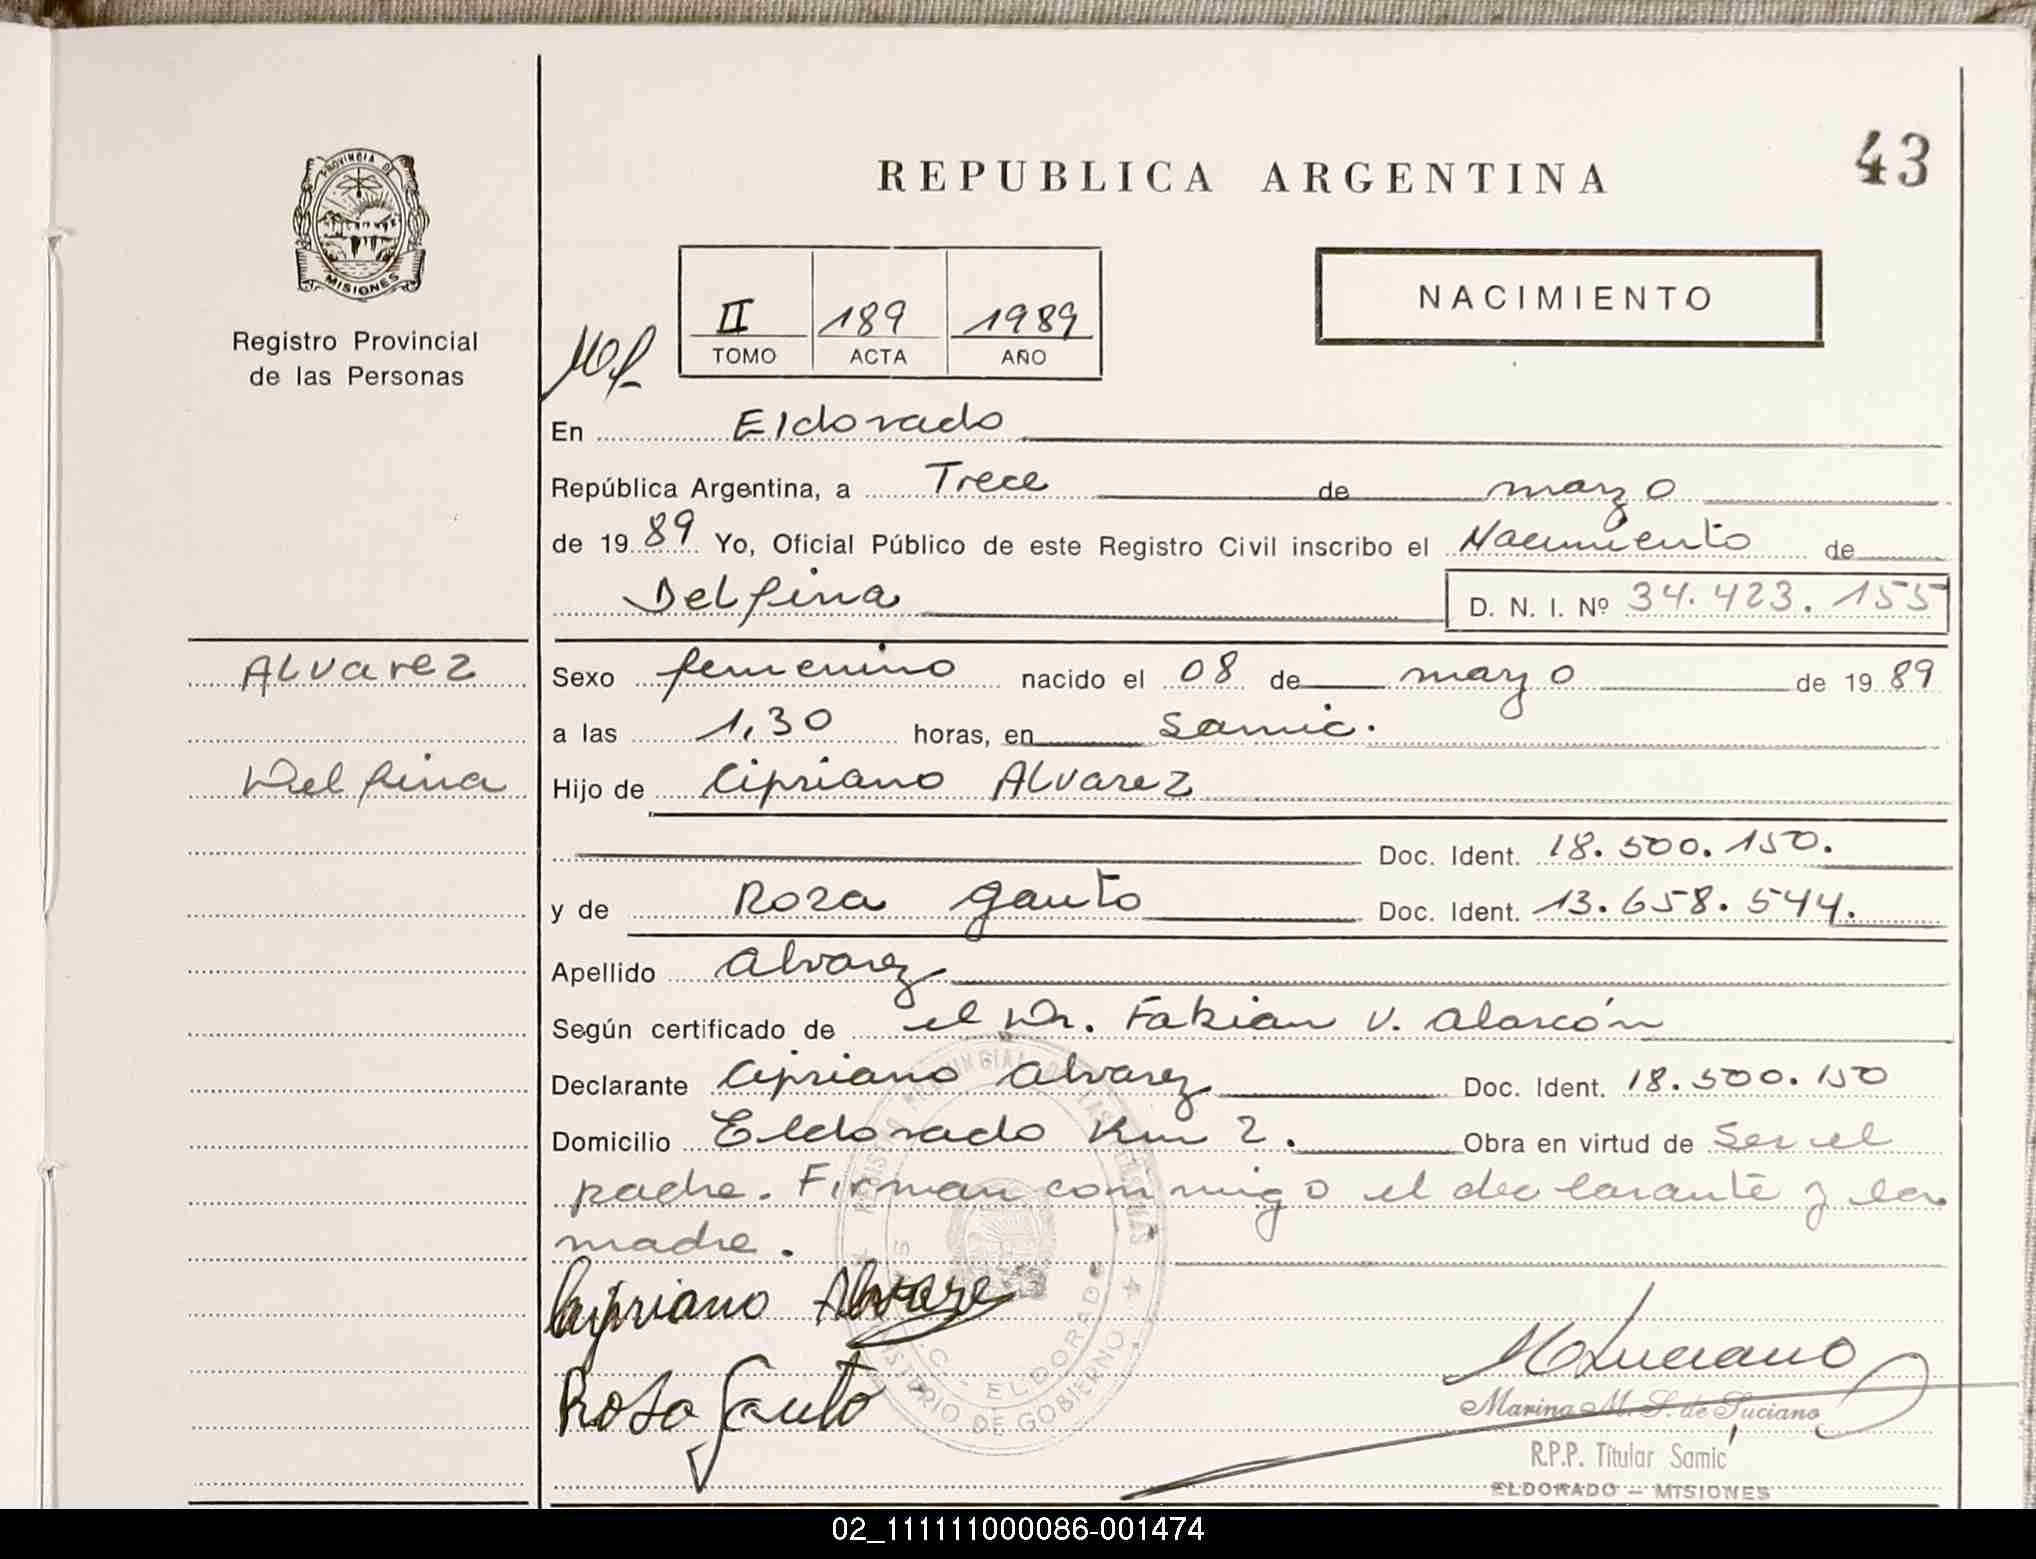 43
REPUBLICA ARGENTINA
PROVINCIA DE
MISIONES
Registro Provincial
de las Personas
II 189 1989
TOMO ACTA AÑO
NACIMIENTO
En Eldorado
República Argentina, a Trece de marzo
de 1989 Yo, Oficial Público de este Registro Civil inscribo el Nacimiento de
Delfina D. N. I. Nº 34.423.155
ALvarez
Delfina
Sexo femenino nacido el 08 de marzo de 1989
a las 1,30 horas, en Samic.
Hijo de Cipriano ALvarez
Doc. Ident. 18.500.150.
y de Rosa Gauto Doc. Ident. 13.658.544.
Apellido Alvarez
Según certificado de el Dr. Fabian V. Alarcón
Declarante Cipriano Alvarez Doc. Ident. 18.500.150
Domicilio Eldorado Km 2. Obra en virtud de Ser el
padre. Firman conmigo el declarante y la
madre.
Cipriano Alvarez
Rosa Gauto
REGISTRO PROVINCIAL DE LAS PERSONAS
ELDORADO
MINISTERIO DE GOBIERNO
MLuciano
Marina M. S. de Luciano
R.P.P. Titular Samic
ELDORADO - MISIONES
02_111111000086-001474